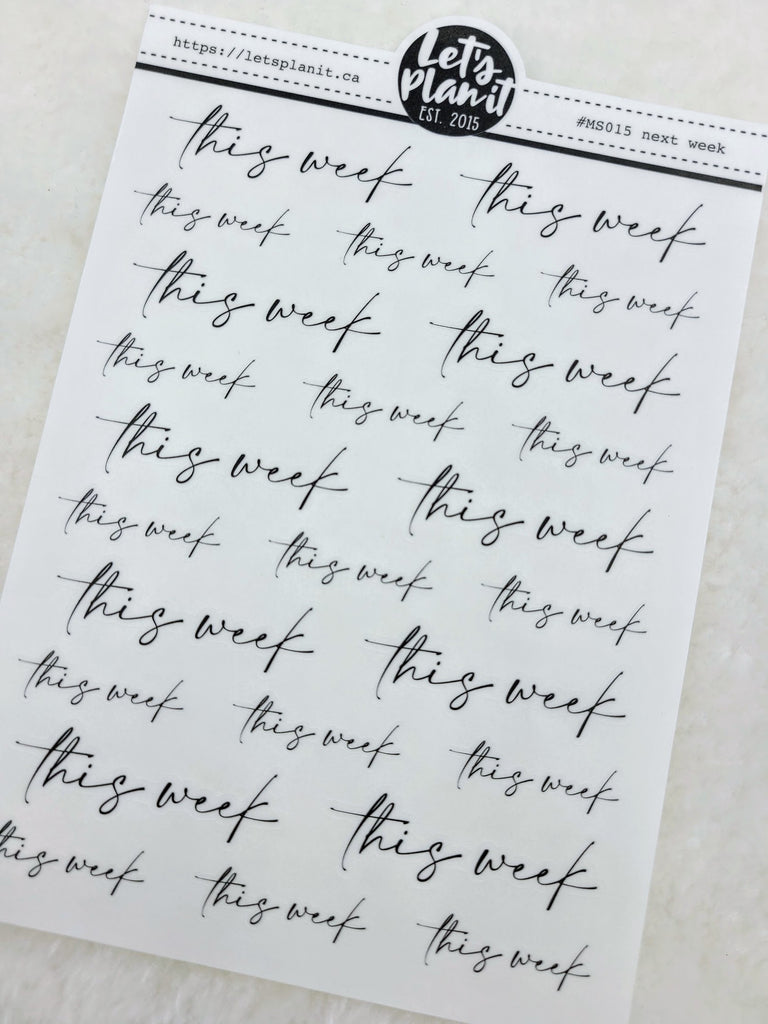 https://letsplanit.ca
Let's
Planit
EST. 2015
#MS015 next week
this week this week
this week this week this week
this week this week
this week this week this week
this week this week
this week this week this week
this week this week
this week this week this week
this week this week
this week this week this week